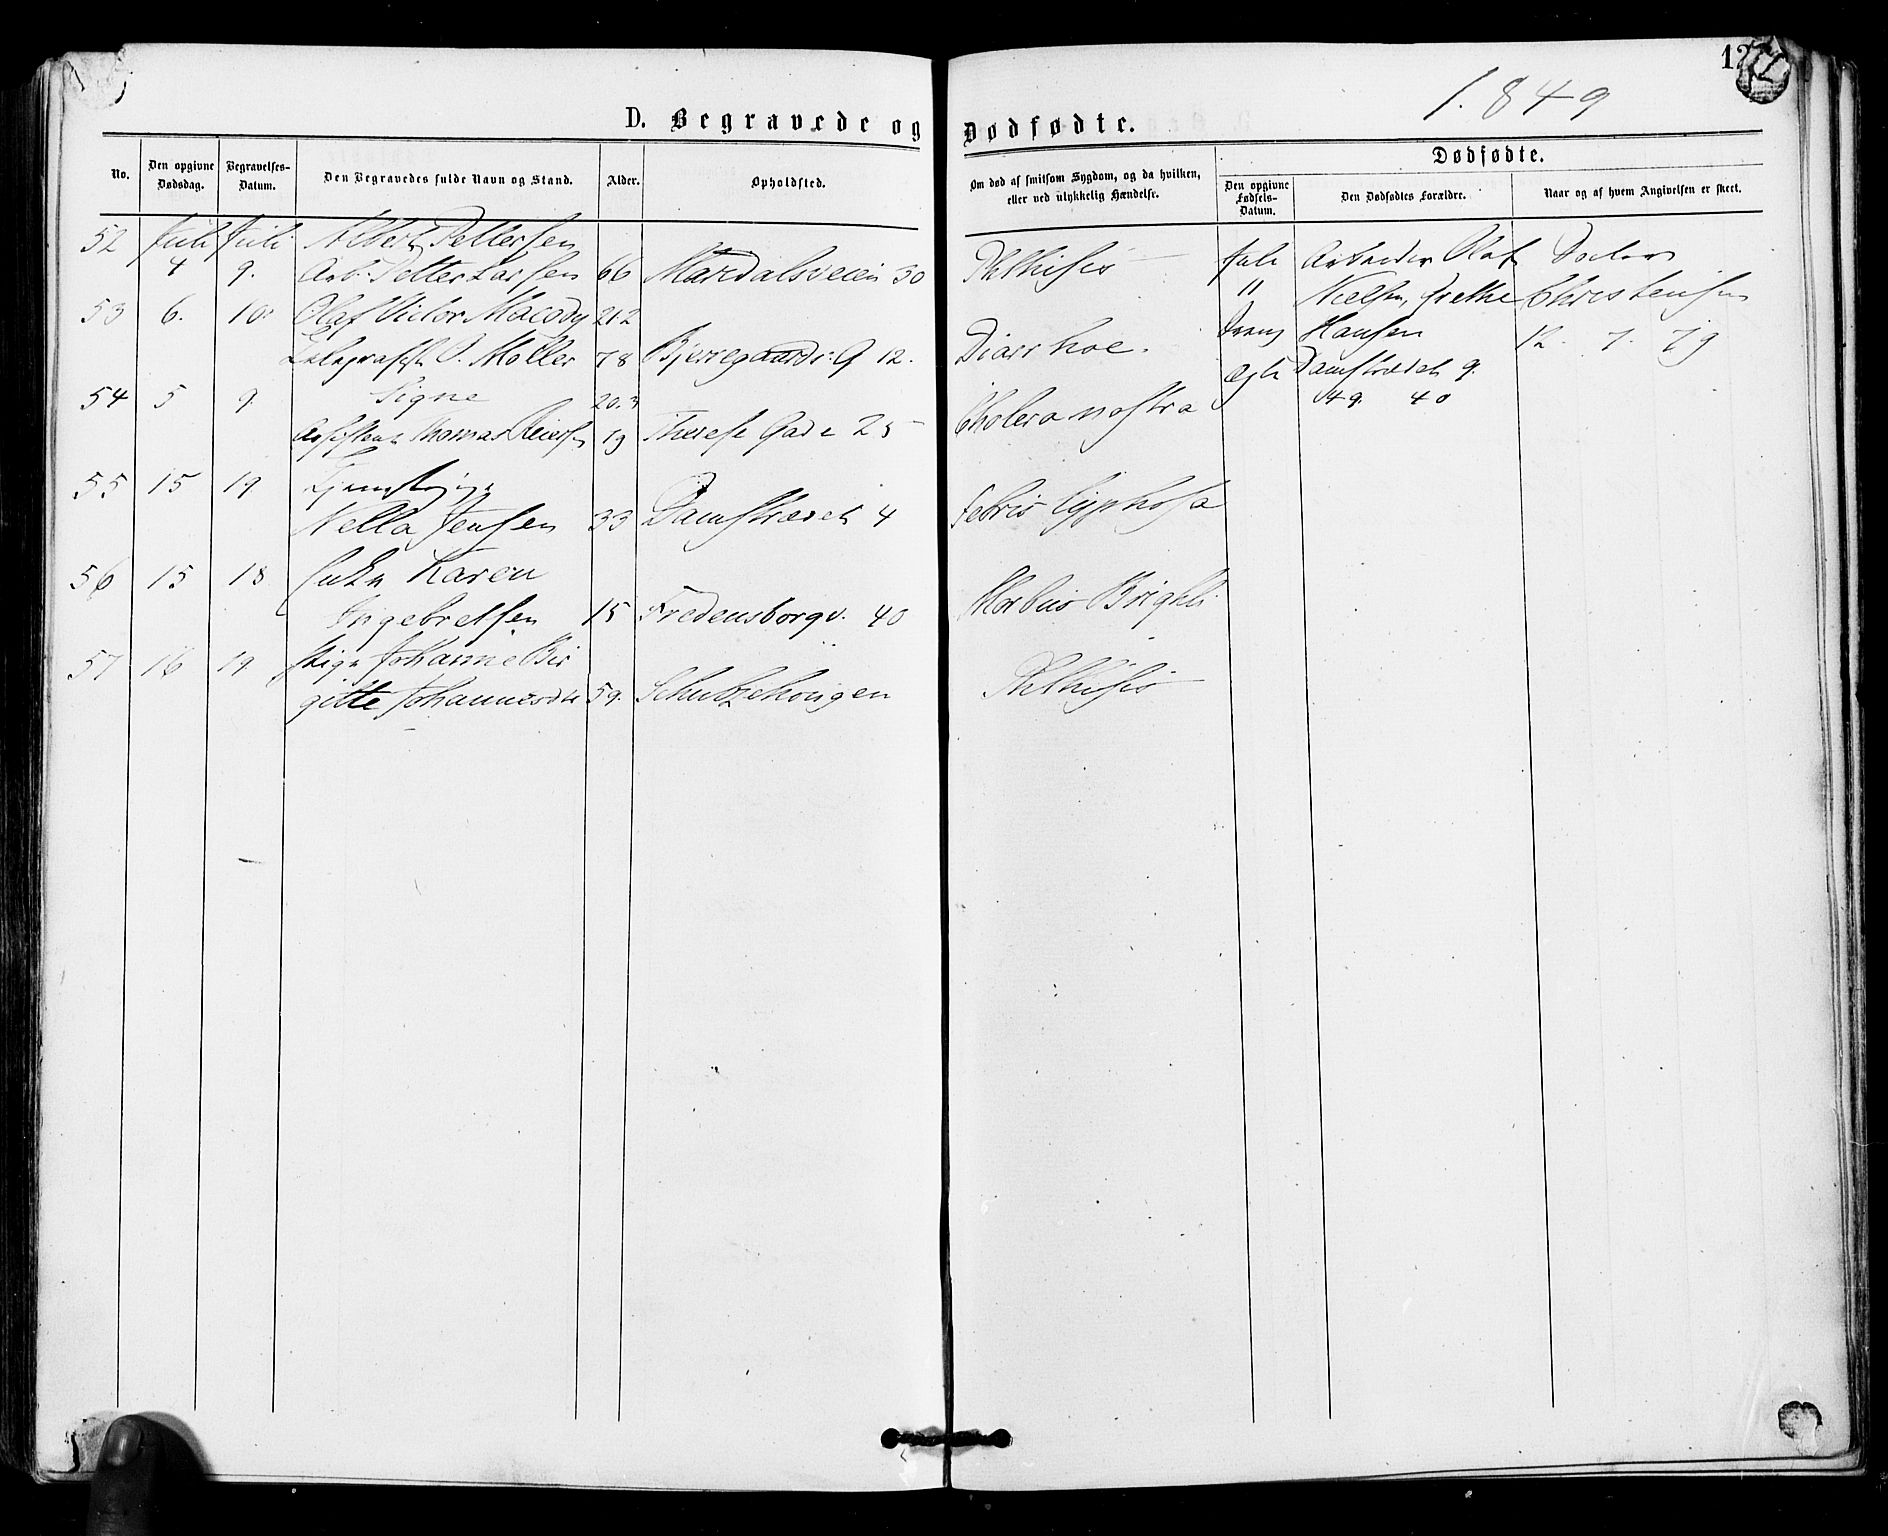 1. 849
D. Begravede og Dødfødte.
No.
Den opgivne Dødsdag.
Begravelses-Datum.
Den Begravedes fulde Navn og Stand.
Alder.
Opholdsted.
Om død af smitsom Sygdom, og da hvilken, eller ved ulykkelig Hændelse.
Dødfødte.
Den opgivne Fødsels-Datum.
Den Dødfødtes Forældre.
Naar og af hvem Angivelsen er skeet.
52 Juli Juli Albert Pettersen
4 9. Arb: Petter Larsen 66 Maridalsveien 30 Phthisis
53 6. 10. Olaf Victor 21.2
Telegrafist Møller 78 Bjerregaards G 12. Diarrhoe.
54 5 9 Signe 20.3
Assistent Thomas Reiersen 19 Therese Gade 25 Cholera nostra
55 15 19
Nella Jensen 33 Damstrædet 4 Febris typhosa
56 15 18 Karen
Ingebretsen 15 Fredensborgv. 40 Morbus Brightii
57 16 19 Pige Johanne Bir
gitte Johannesdtr 59. Schultzehougen Phthisis
Juli Arbeider Olaf Doctor
11 Nielsen, Grethe Christensen
Dreng Hansen 12. 7. 79
Ægte Damstrædet 9.
49. 40